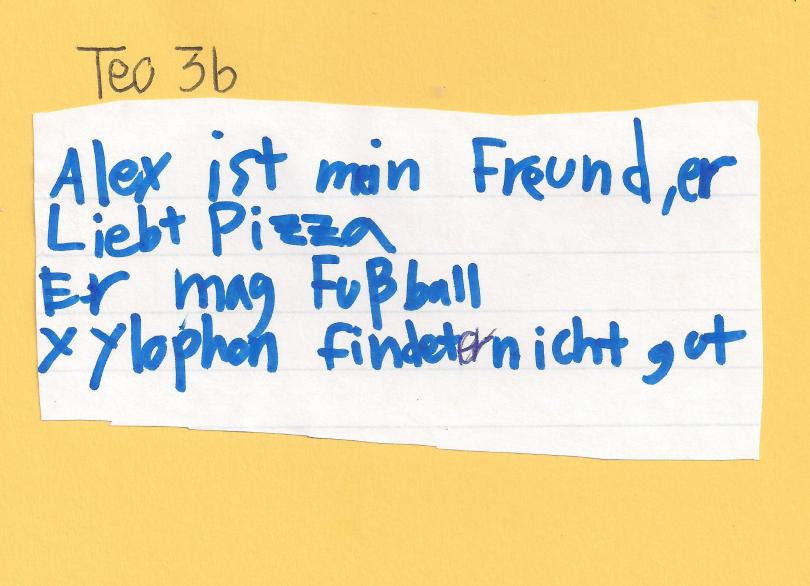 Teo 3b
Alex ist mein Freund, er
Liebt Pizza
Er mag Fußball
Xylophon findet er nicht gut